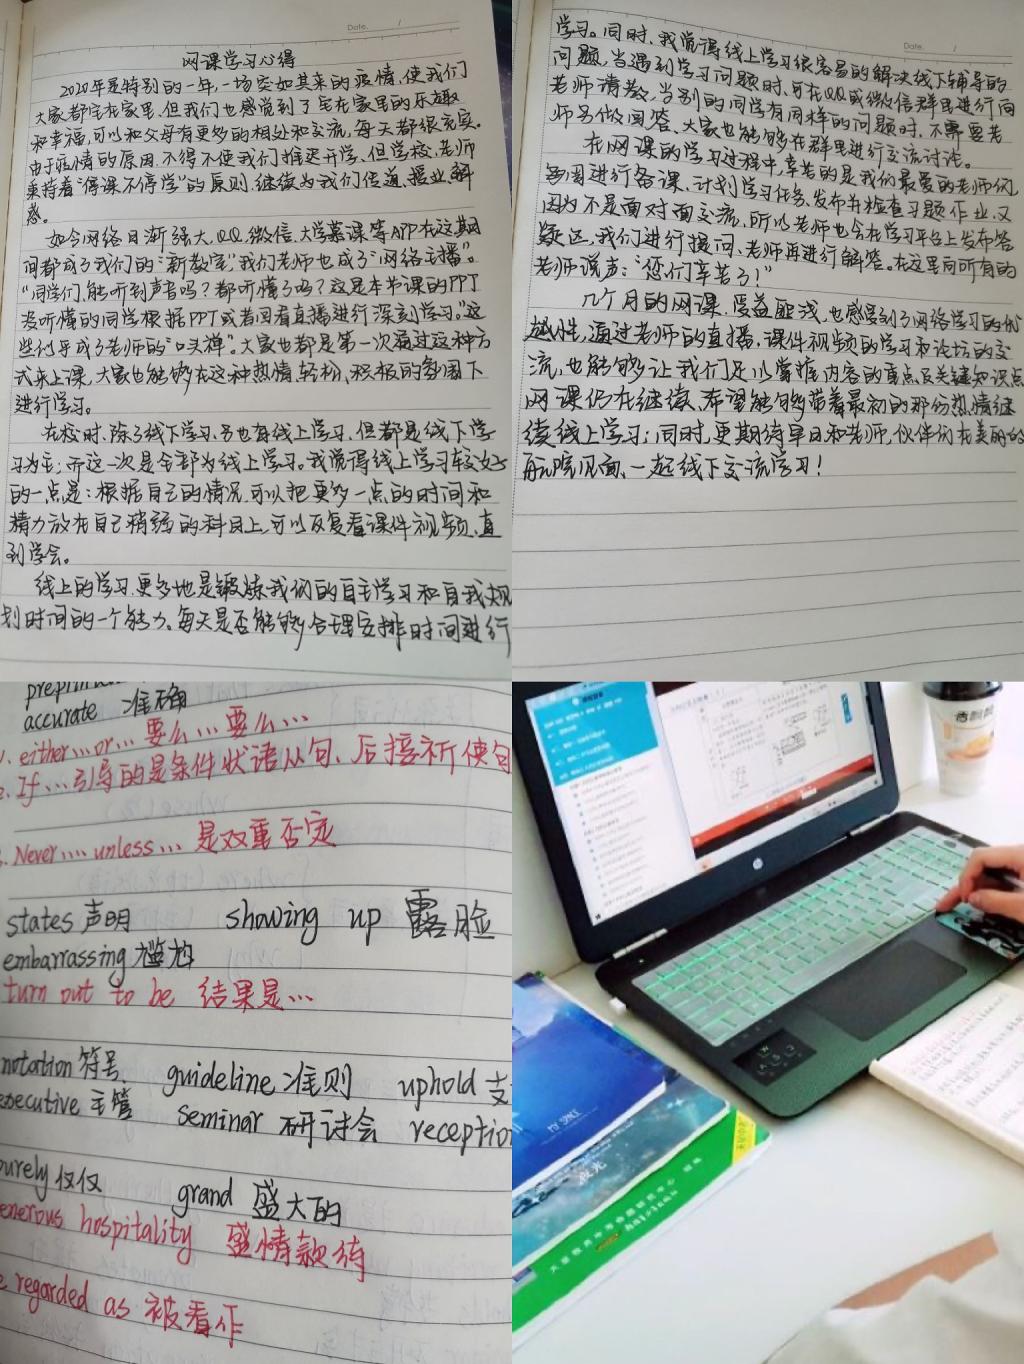 Date. /
网课学习心得
2020年是特别的一年,一场突如其来的疫情,使我们
大家都宅在家里,但我们也感觉到了宅在家里的乐趣
和幸福,可以和父母有更多的相处和交流,每天都很充实。
由于疫情的原因,不得不使我们推迟开学,但学校、老师
秉持着“停课不停学”的原则,继续为我们传道、授业、解
惑。
如今网络日渐强大,QQ、微信、大学慕课等APP在这期
间都成了我们的“新教室”,我们老师也成了“网络主播”。
“同学们,能听到声音吗?都听懂了吗?这是本节课的PPT
没听懂的同学根据PPT或者回看直播进行深刻学习。”这
些似乎成了老师的“口头禅”。大家也都是第一次通过这种方
式来上课,大家也能够在这种热情、轻松、积极的氛围下
进行学习。
在校时,除了线下学习,另也有线上学习,但都是线下学
习为主;而这一次是全部为线上学习。我觉得线上学习较好
的一点是:根据自己的情况,可以把更多一点的时间和
精力放在自己稍弱的科目上,可以反复看课件视频,直
到学会。
线上的学习,更多地是锻炼我们的自主学习和自我规
划时间的一个能力。每天是否能够合理安排时间进行
Date. /
学习。同时,我觉得线上学习很容易的解决线下辅导的
问题,当遇到学习问题时,可在QQ或微信群里进行向
老师请教,当别的同学有同样的问题时,不需要老
师另做回答、大家也能够在群里进行交流讨论。
在网课的学习过程中,辛苦的是我们最爱的老师们,
每周进行备课、计划学习任务、发布并检查习题作业,又
因为不是面对面交流,所以老师也会在学习平台上发布答
疑区,我们进行提问,老师再进行解答。在这里向所有的
老师说声:“您们辛苦了!”
几个月的网课,受益匪浅,也感受到了网络学习的优
越性,通过老师的直播,课件视频的学习和论坛的交
流,也能够让我们足以掌握内容的重点及关键知识点
网课仍在继续,希望能够带着最初的那份热情继
续线上学习;同时,更期待早日和老师、伙伴们在美丽的
航院见面、一起线下交流学习!
accurate 准确
either...or... 要么...要么...
If...引导的是条件状语从句、后接祈使句
Never... unless... 是双重否定
states 声明 showing up 露脸
embarrassing 尴尬
turn out to be 结果是...
notation 符号 guideline 准则 uphold 支
executive 主管 seminar 研讨会 reception
purely 仅仅 grand 盛大的
generous hospitality 盛情款待
regarded as 被看作
hp
香飘飘
MY SPACE
夜光